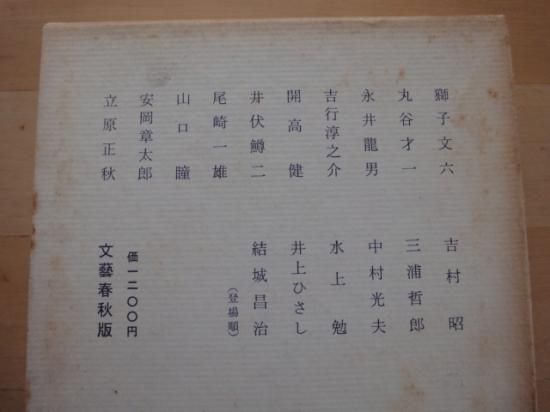 獅子文六
丸谷才一
永井龍男
吉行淳之介
開高健
井伏鱒二
尾崎一雄
山口瞳
安岡章太郎
立原正秋
吉村昭
三浦哲郎
中村光夫
水上勉
井上ひさし
結城昌治
(登場順)
価一二〇〇円
文藝春秋版